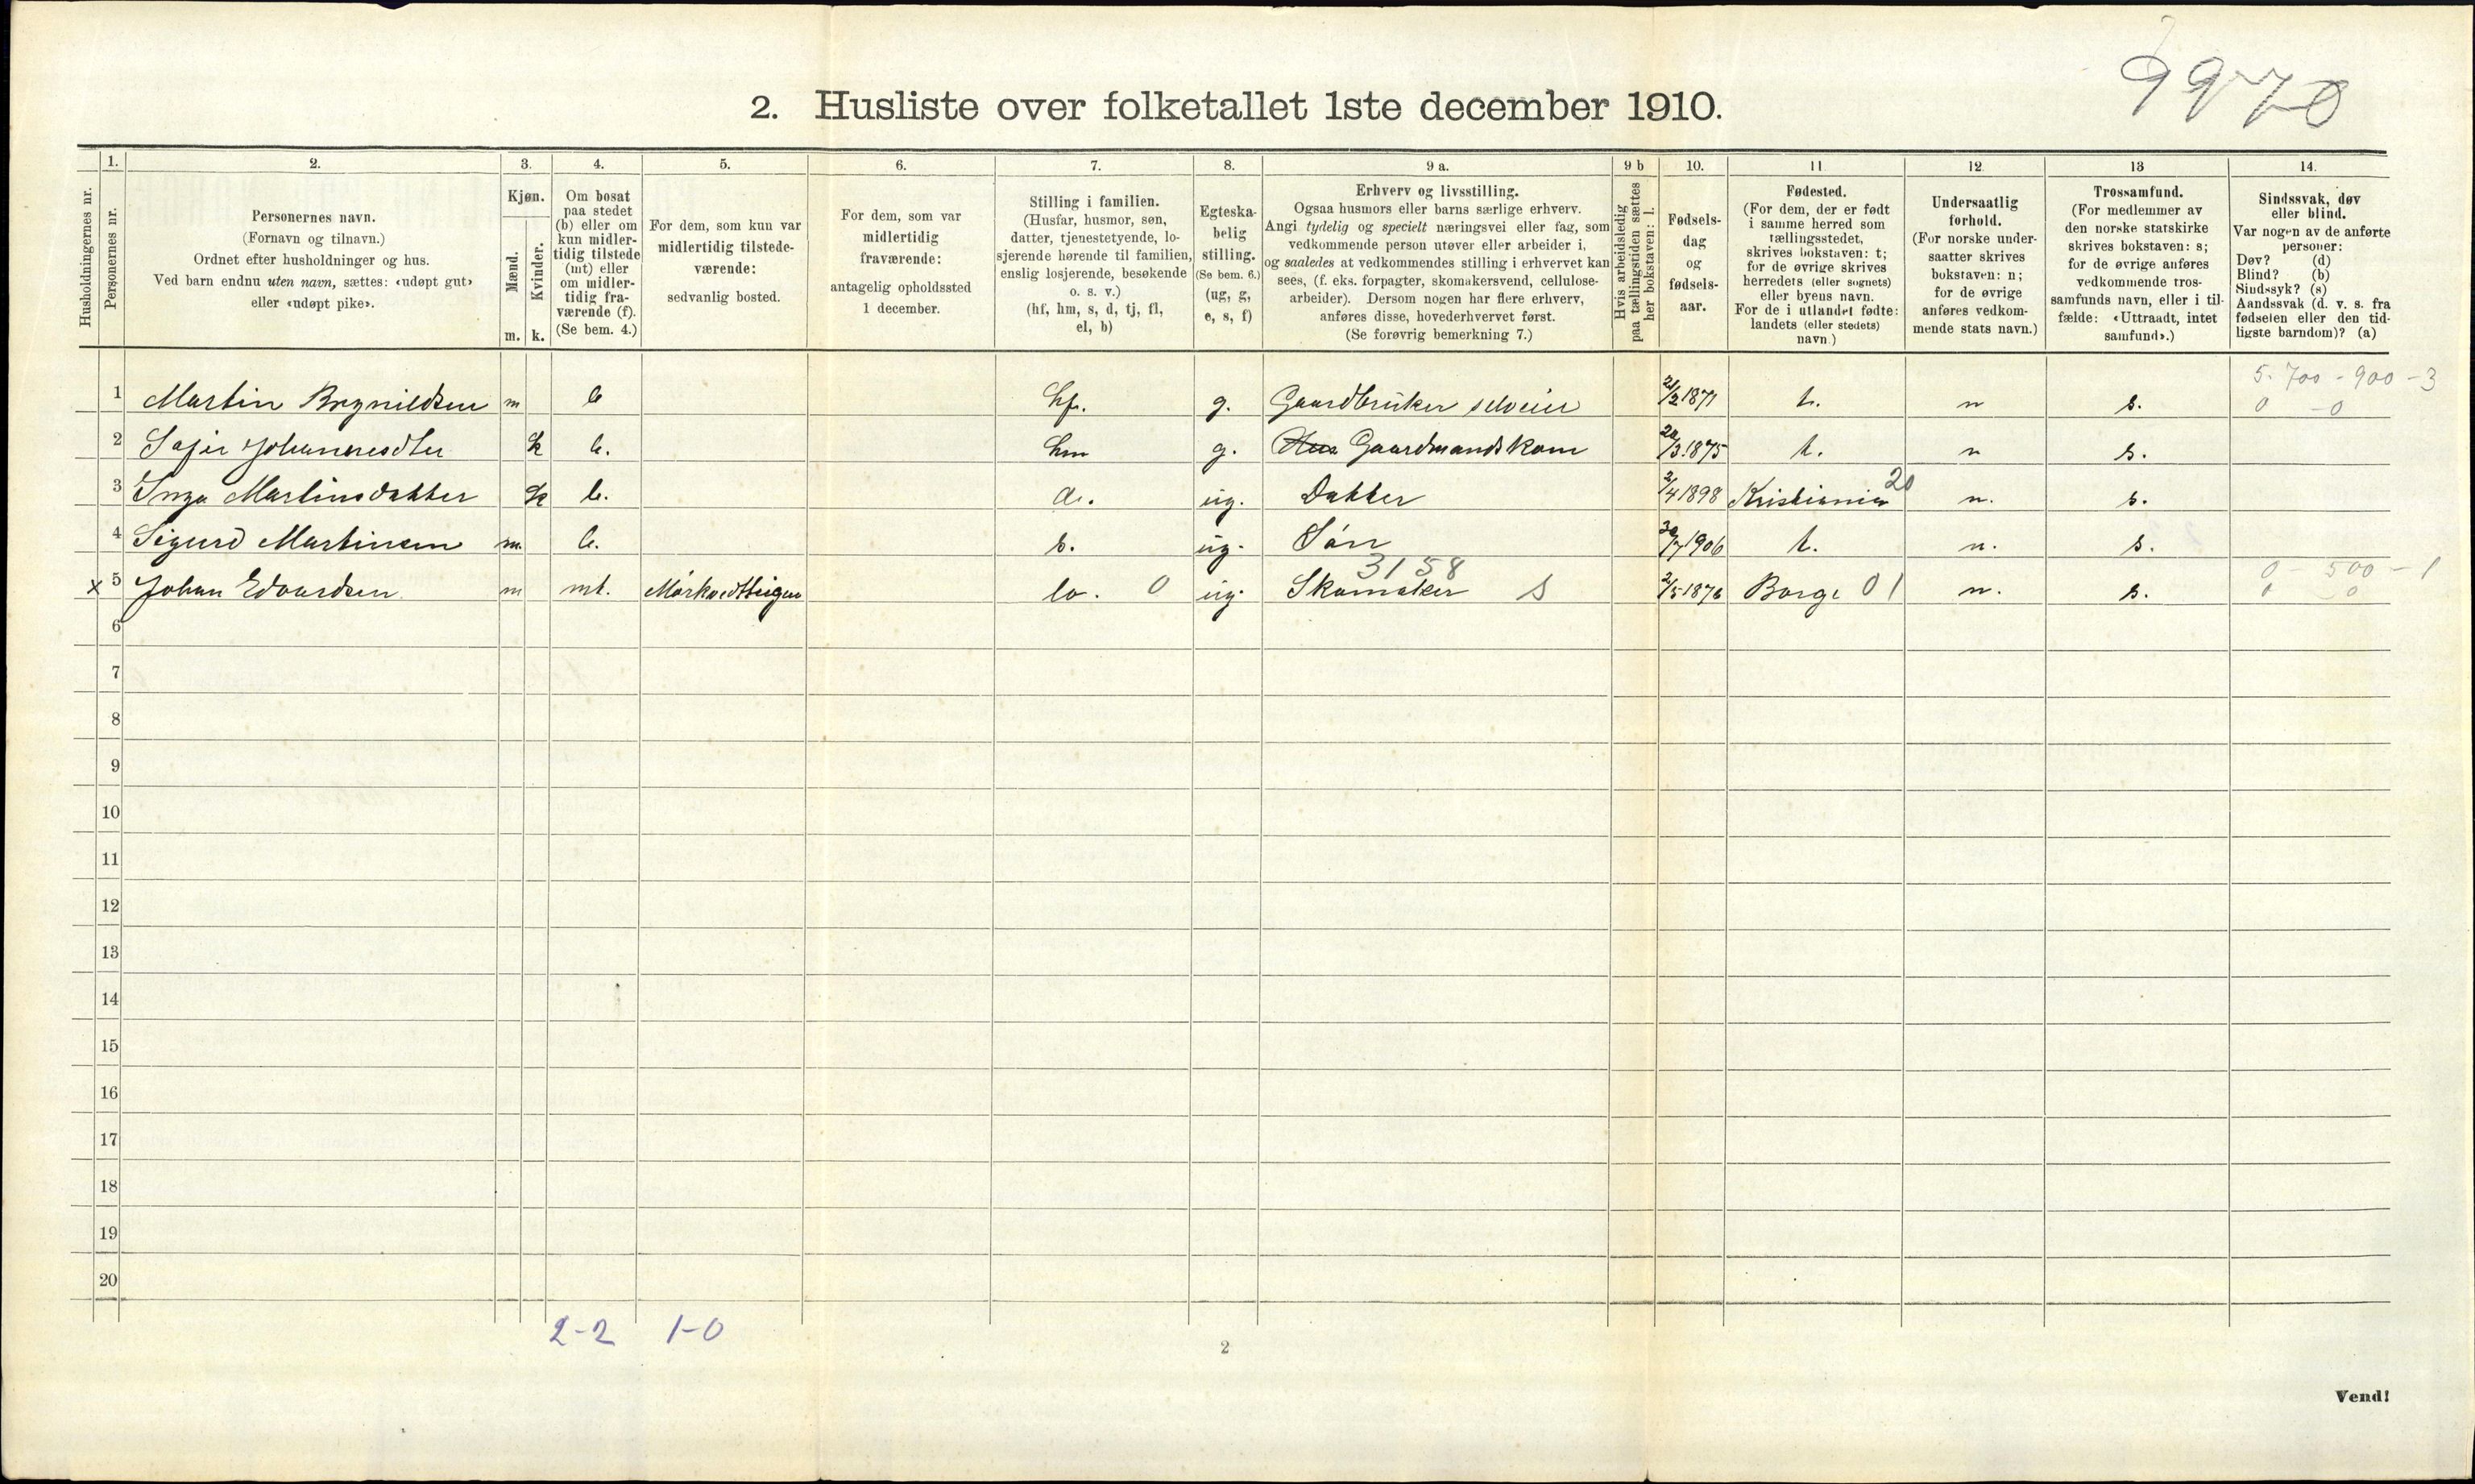 9970
2. Husliste over folketallet 1ste december 1910.
Husholdningernes nr.
1.
Personernes nr.
2.
Personernes navn.
(Fornavn og tilnavn.)
Ordnet efter husholdninger og hus.
Ved barn endnu uten navn, sættes: «udøpt gut»
eller «udøpt pike».
3.
Kjøn.
Mænd.
Kvinder.
m. k.
4.
Om bosat
paa stedet
(b) eller om
kun midler-
tidig tilstede
(mt) eller
om midler-
tidig fra-
værende (f).
(Se bem. 4.)
5.
For dem, som kun var
midlertidig tilstede-
værende:
sedvanlig bosted.
6.
For dem, som var
midlertidig
fraværende:
antagelig opholdssted
1 december.
7.
Stilling i familien.
(Husfar, husmor, søn,
datter, tjenestetyende, lo-
sjerende hørende til familien,
enslig losjerende, besøkende
o. s. v.)
(hf, hm, s, d, tj, fl,
el, b)
8.
Egteska-
belig
stilling.
(Se bem. 6.)
(ug, g,
e, s, f)
9 a.
Erhverv og livsstilling.
Ogsaa husmors eller barns særlige erhverv.
Angi tydelig og specielt næringsvei eller fag, som
vedkommende person utøver eller arbeider i,
og saaledes at vedkommendes stilling i erhvervet kan
sees, (f. eks. forpagter, skomakersvend, cellulose-
arbeider). Dersom nogen har flere erhverv,
anføres disse, hovederhvervet først.
(Se forøvrig bemerkning 7.)
9 b
Hvis arbeidsledig
paa tællingstiden sættes
her bokstaven: l.
10.
Fødsels-
dag
og
fødsels-
aar.
11
Fødested.
(For dem, der er født
i samme herred som
tællingsstedet,
skrives bokstaven: t;
for de øvrige skrives
herredets (eller sognets)
eller byens navn.
For de i utlandet fødte:
landets (eller stedets)
navn.)
12.
Undersaatlig
forhold.
(For norske under-
saatter skrives
bokstaven: n;
for de øvrige
anføres vedkom-
mende stats navn.)
13
Trossamfund.
(For medlemmer av
den norske statskirke
skrives bokstaven: s;
for de øvrige anføres
vedkommende tros-
samfunds navn, eller i til-
fælde: «Uttraadt, intet
samfund».)
14.
Sindssvak, døv
eller blind.
Var nogen av de anførte
personer:
Døv? (d)
Blind? (b)
Sindssyk? (s)
Aandssvak (d. v. s. fra
fødselen eller den tid-
ligste barndom)? (a)
5-700-900-3
1 Martin Brynildsen m b hf. g. Gaardbruker selveier 21/2 1871 t. n s. 0 - 0
2 Sofie Johannesdtr k b. hm g. Hus Gaardmandskone 20/3 1875 t. n s.
3 Inga Martinsdatter k b. d. ug. Datter 2/4 1898 Kristiania 20 n. s.
4 Sigurd Martinsen m. b. s. ug. Søn 30/7 1906 t. n. s.
3158 0 - 500 - 1
x 5 Johan Edvardsen m mt. lo. 0 ug. Skomaker S 2/5 1876 Borge 01 n. s. 0 0
6
7
8
9
10
11
12
13
14
15
16
17
18
19
20
2-2 1-0
2
Vend!